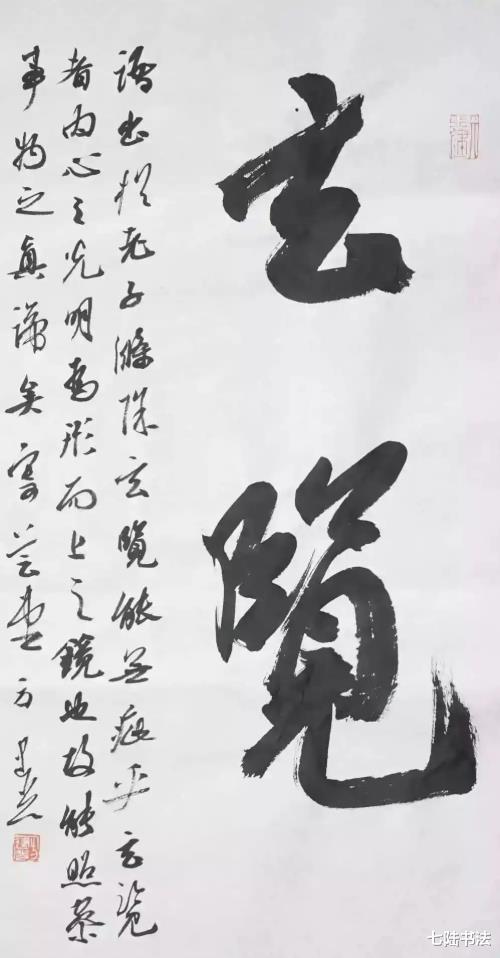 玄覽
語出於老子滌除玄覽能無疵乎玄覽
者內心之光明為形而上之鏡也故能照察
事物之真諦矣寄芸堂方
七陆书法